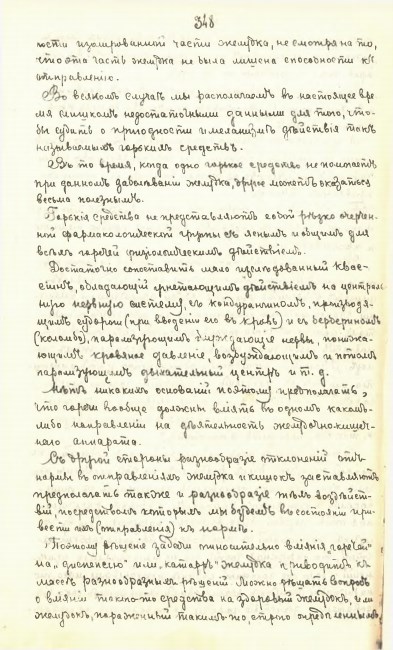 348
ности изолированной части желудка, не смотря на то,
что эта часть желудка не была лишена способности къ
отправленію.
Во всякомъ случаѣ мы располагаемъ въ настоящее вре
мя слишкомъ недостаточными данными для того, что-
бы судить о пригодности и механизмѣ дѣйствія такъ
называемыхъ горькихъ средствъ.
Въ то время, когда одно горькое средство не помогаетъ
при данномъ заболѣваніи желудка, другое можетъ оказаться
весьма полезнымъ.
Горькія средства не представляютъ собой рѣзко очерчен-
ной фармакологической группы съ яснымъ и общимъ для
всѣхъ горечей физіологическимъ дѣйствіемъ.
Достаточно сопоставить мало изслѣдованный квас-
сіинъ, обладающій угнетающимъ дѣйствіемъ на централь
ную нервную систему, съ кондурангиномъ, производя-
щимъ судороги (при введеніи его въ кровь) и съ берберином
(коломбо), парализующимъ блуждающіе нервы, понижа-
ющимъ кровяное давленіе, возбуждающимъ и потомъ
парализующимъ дыхательный центръ и т. д.
Нѣтъ никакихъ основаній поэтому предполагать,
что горечи вообще должны вліять въ одномъ какомъ-
либо направленіи на дѣятельность желудочно-кишеч-
наго аппарата.
Съ другой стороны разнообразіе отклоненій отъ
нормы въ отправленіяхъ желудка и кишокъ заставляютъ
предполагать также и разнообразіе тѣхъ воздѣйст-
вій, посредствомъ которыхъ мы будемъ въ состояніи при-
вести ихъ (отправленія) къ нормѣ.
Поэтому рѣшеніе задачи относительно вліянія „горечей"
на „диспепсію" или „катаръ" желудка приводитъ къ
массѣ разнообразныхъ рѣшеній. Можно рѣшать вопросъ
о вліяніи такого-то средства на здоровый желудокъ, или
желудокъ, пораженный такимъ-то, строго опредѣленнымъ